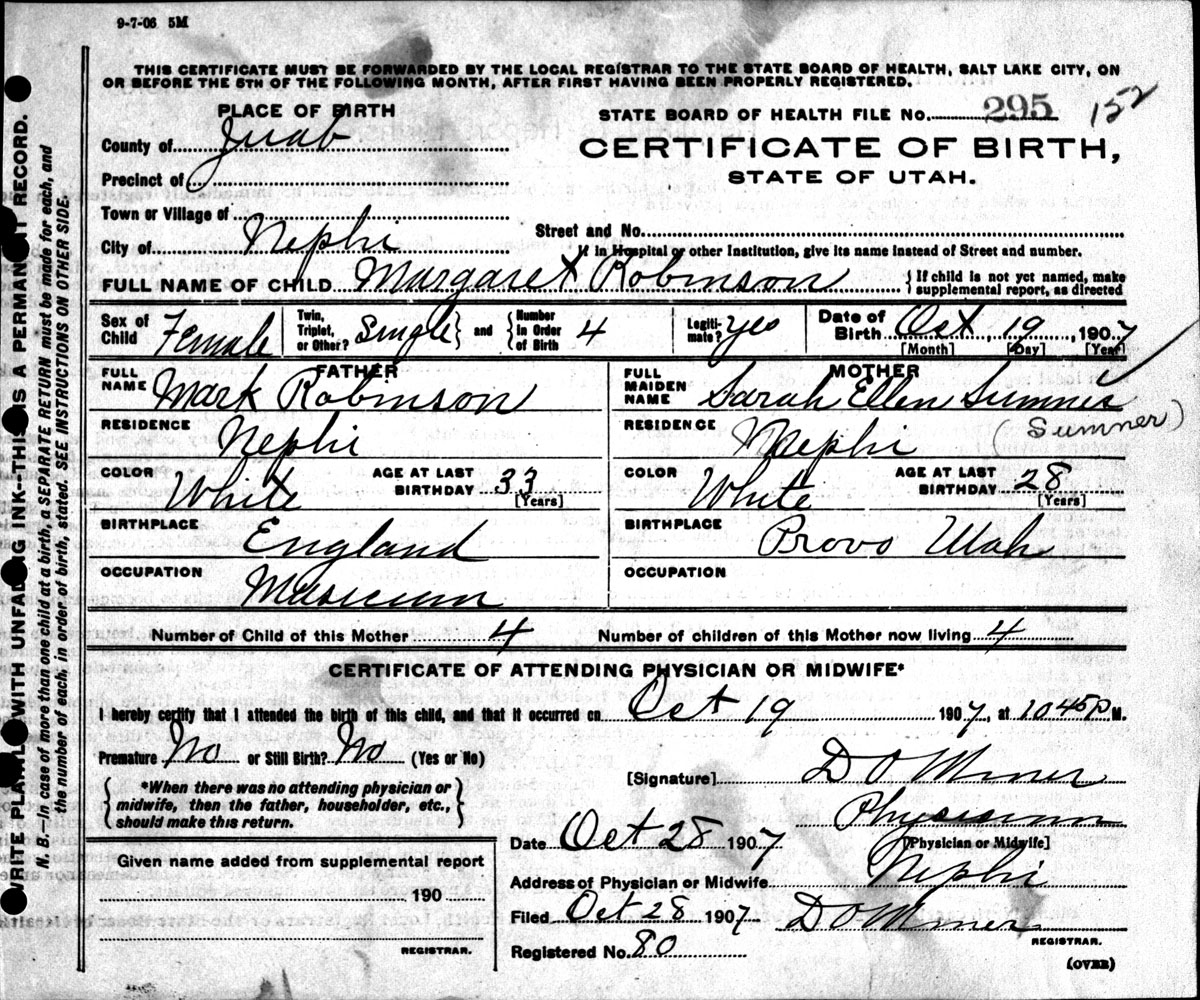 9-7-06 5M
THIS CERTIFICATE MUST BE FORWARDED BY THE LOCAL REGISTRAR TO THE STATE BOARD OF HEALTH, SALT LAKE CITY, ON
OR BEFORE THE 5TH OF THE FOLLOWING MONTH, AFTER FIRST HAVING BEEN PROPERLY REGISTERED.
PLACE OF BIRTH
STATE BOARD OF HEALTH FILE No. 295 152
County of Juab
CERTIFICATE OF BIRTH,
Precinct of
STATE OF UTAH.
Town or Village of
Street and No.
City of Nephi
If in Hospital or other Institution, give its name instead of Street and number.
FULL NAME OF CHILD Margaret Robinson {If child is not yet named, make
supplemental report, as directed
Sex of Child Female Twin, Triplet, or Other? Single } and { Number in Order of Birth 4 Legiti-mate? Yes Date of Birth Oct, 19, 1907
[Month] [Day] [Year]
FATHER
MOTHER
FULL NAME Mark Robinson
FULL MAIDEN NAME Sarah Ellen Sumner
RESIDENCE Nephi
RESIDENCE Nephi (Sumner)
COLOR White AGE AT LAST BIRTHDAY 33 [Years]
COLOR White AGE AT LAST BIRTHDAY 28 [Years]
BIRTHPLACE England
BIRTHPLACE Provo Utah
OCCUPATION Musician
OCCUPATION
Number of Child of this Mother 4 Number of children of this Mother now living 4
CERTIFICATE OF ATTENDING PHYSICIAN OR MIDWIFE*
I hereby certify that I attended the birth of this child, and that it occurred on Oct 19 1907, at 10 45 P M.
Premature No or Still Birth? No (Yes or No)
[Signature] D O Miner
{ *When there was no attending physician or
midwife, then the father, householder, etc.,
should make this return. }
Physician
[Physician or Midwife]
Date Oct 28 1907
Address of Physician or Midwife Nephi
Given name added from supplemental report
190
REGISTRAR.
Filed Oct 28 1907 D O Miner
REGISTRAR.
Registered No. 80
(OVER)
WRITE PLAINLY WITH UNFADING INK--THIS IS A PERMANENT RECORD.
N. B.—In case of more than one child at a birth, a SEPARATE RETURN must be made for each, and
the number of each, in order of birth, stated. SEE INSTRUCTIONS ON OTHER SIDE.